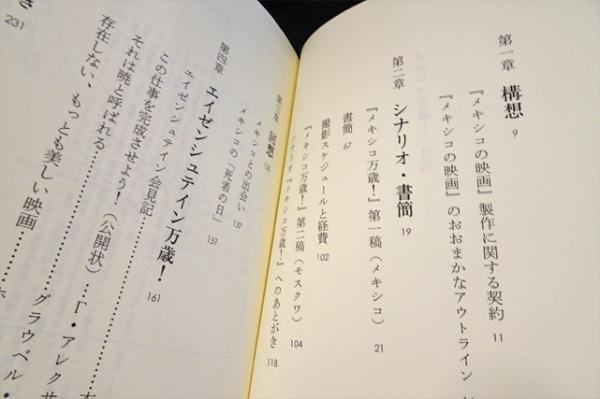 第一章 構想 9
『メキシコの映画』製作に関する契約 11
『メキシコの映画』のおおまかなアウトライン
第二章 シナリオ・書簡 19
『メキシコ万歳!』第一稿(メキシコ) 21
書簡 67
撮影スケジュールと経費 102
『メキシコ万歳!』第二稿(モスクワ) 104
シナリオ『メキシコ万歳!』へのあとがき 118
第三章 回想
メキシコとの出会い 137
メキシコの「死者の日」 151
第四章 エイゼンシュテイン万歳! 161
エイゼンシュテイン会見記
この仕事を完成させよう!(公開状)……Г・アレクサ
それは暁と呼ばれる……グラウベル・
存在しない、もっとも美しい映画……
231